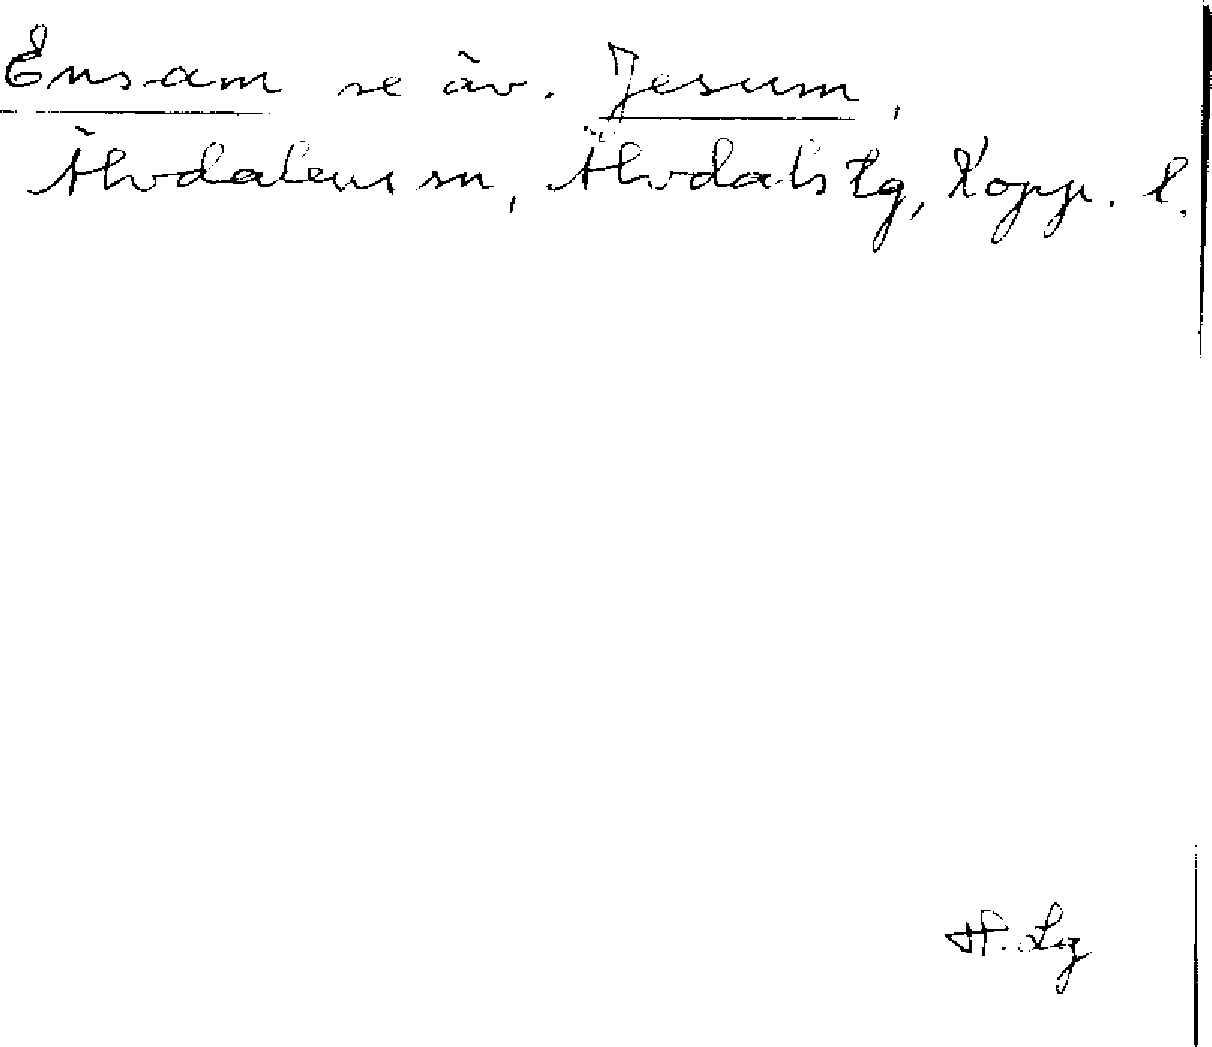 Ensam se äv. Jesum,
Älvdalens sn, Älvdals tg, Kopp. l.
H. Lg